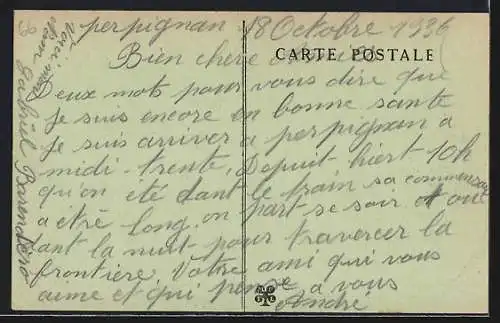 perpignan 18 Octobre 1936
CARTE POSTALE
Bien chère
Deux mots pour vous dire que
Je suis encore en bonne sante
Je suis arriver a perpignan a
midi - trente, Depuit hiert 10h
qu'on eté dant le train sa commensai
a être long. on part se soir et on
dant la nuit pour travercer la
frontiere. Votre ami qui vous
aime et qui pense a vous
André
Voici mon
nom Gabriel